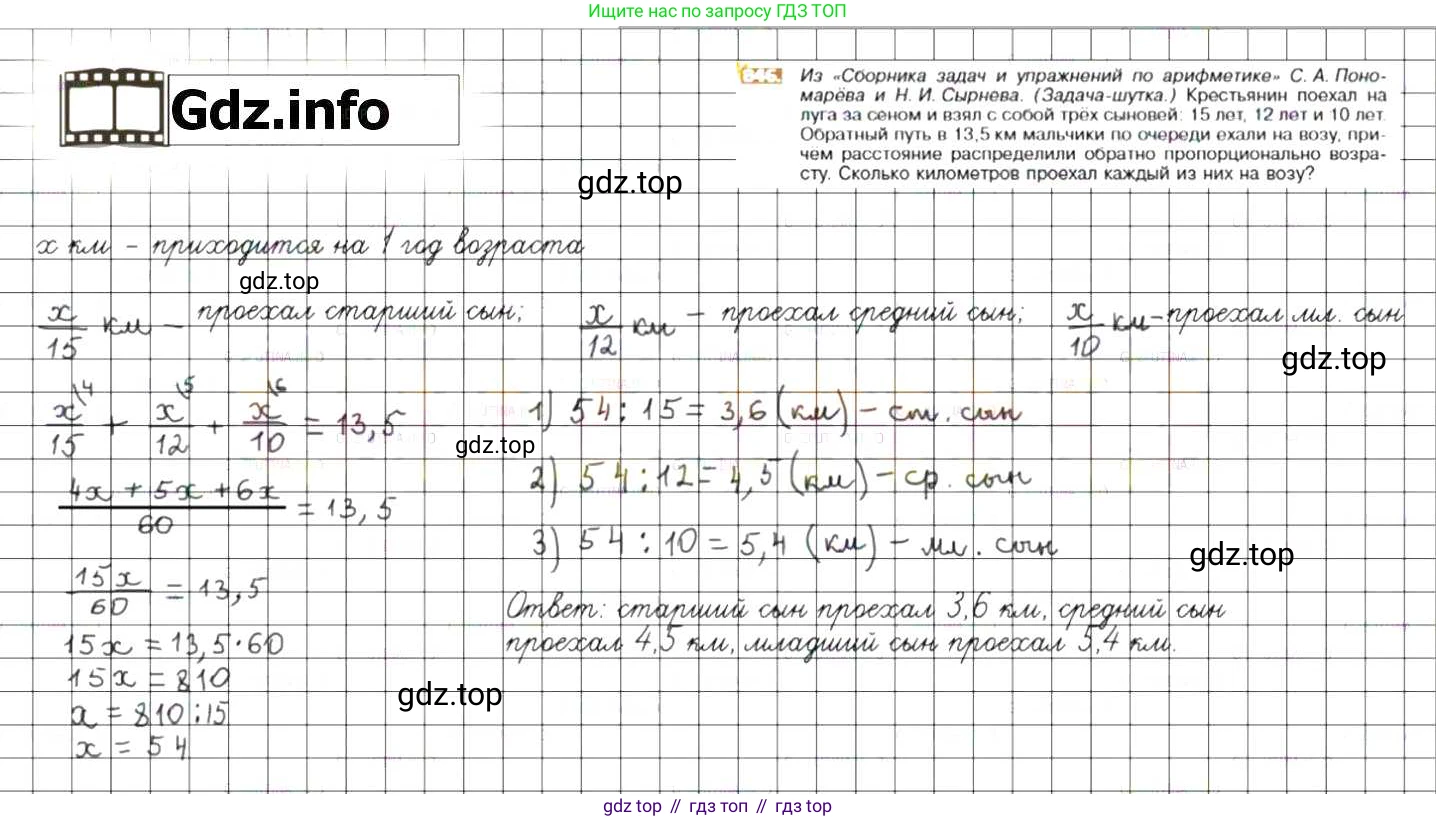 Ищите нас по запросу ГДЗ ТОП
Gdz.info
846. Из «Сборника задач и упражнений по арифметике» С. А. Поно-
марёва и Н. И. Сырнева. (Задача-шутка.) Крестьянин поехал на
луга за сеном и взял с собой трёх сыновей: 15 лет, 12 лет и 10 лет.
Обратный путь в 13,5 км мальчики по очереди ехали на возу, при-
чём расстояние распределили обратно пропорционально возра-
сту. Сколько километров проехал каждый из них на возу?
gdz.top
x км - приходится на 1 год возраста
gdz.top
x/15 км - проехал старший сын; x/12 км - проехал средний сын; x/10 км - проехал мл. сын
gdz.top
x\4/15 + x\5/12 + x\6/10 = 13,5
gdz.top
(4x + 5x + 6x)/60 = 13,5
15x/60 = 13,5
15x = 13,5·60
15x = 810
x = 810:15
x = 54
1) 54:15 = 3,6 (км) - ст. сын
2) 54:12 = 4,5 (км) - ср. сын
3) 54:10 = 5,4 (км) - мл. сын
gdz.top
Ответ: старший сын проехал 3,6 км, средний сын
проехал 4,5 км, младший сын проехал 5,4 км.
gdz.top
gdz top // гдз топ // gdz top